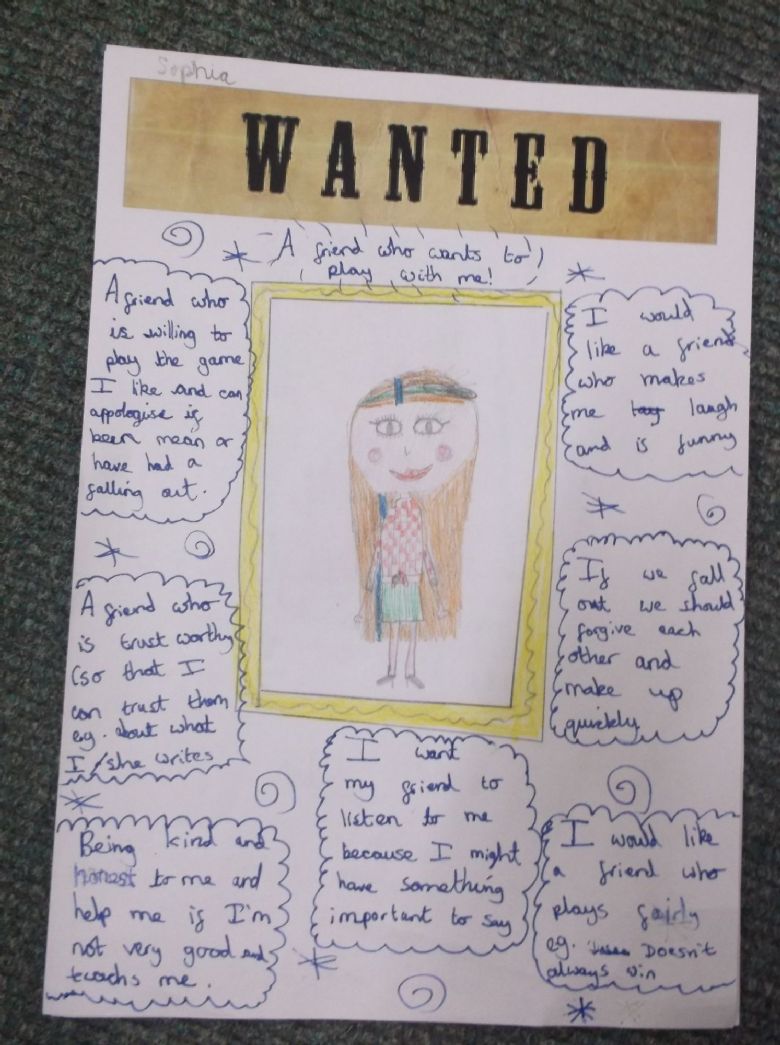 Sophia
WANTED
A friend who wants to
play with me!
A friend who
is willing to
play the game
I like and can
appologise if
been mean or
have had a
falling out.
I would
like a friend
who makes
me laugh
and is funny
A friend who
is trust worthy
(so that I
can trust them
eg. about what
I/she writes
If we fall
out we should
forgive each
other and
make up
quickly
Being kind and
honest to me and
help me if I'm
not very good and
teachs me.
I want
my friend to
listen to me
because I might
have something
important to say
I would like
a friend who
plays fairly
eg. Doesn't
always win